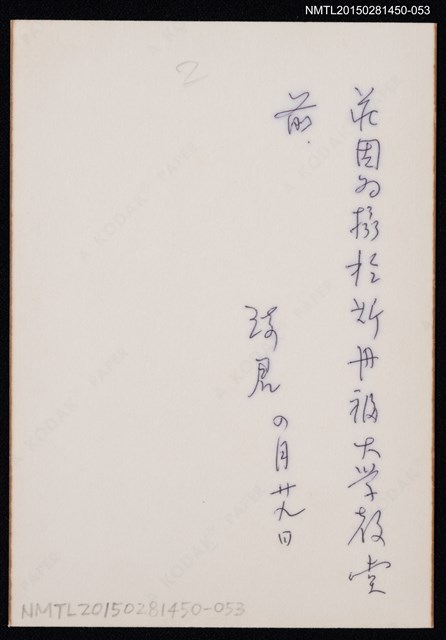 NMTL20150281450-053
2
莊因為攝於斯丹福大学教堂
前.
琦君 四月廿九日
A KODAK PAPER
NMTLZ0150281450-053